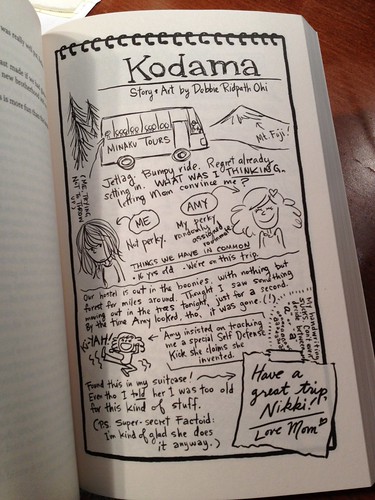 was really well w
ast made if we had go
new brother
is more fun than
Kodama
Story & Art by Debbie Ridpath Ohi
MINAKU TOURS
Mt. Fuji!
Jetlag. Bumpy ride. Regret already
setting in. WHAT WAS I THINKING,
letting Mom convince me?
(ME, TRYING
NOT TO THROW
UP.)
ME
Not perky.
AMY
My perky
randomly
assigned
roommate
THINGS WE HAVE IN COMMON
• 16 yrs old • We're on this trip.
Our hostel is out in the boonies, with nothing but
forest for miles around. Thought I saw something
moving out in the trees tonight, just for a second.
By the time Amy looked, tho, it was gone. (!)
KI-YAH!
Amy insisted on teaching
me a special Self Defense
Kick she claims she
invented.
Found this in my suitcase!
Even tho I told her I was too old
for this kind of stuff.
(PS. Super-secret Factoid:
I'm kind of glad she does
it anyway.)
Have a
great trip,
Nikki!
Love Mom